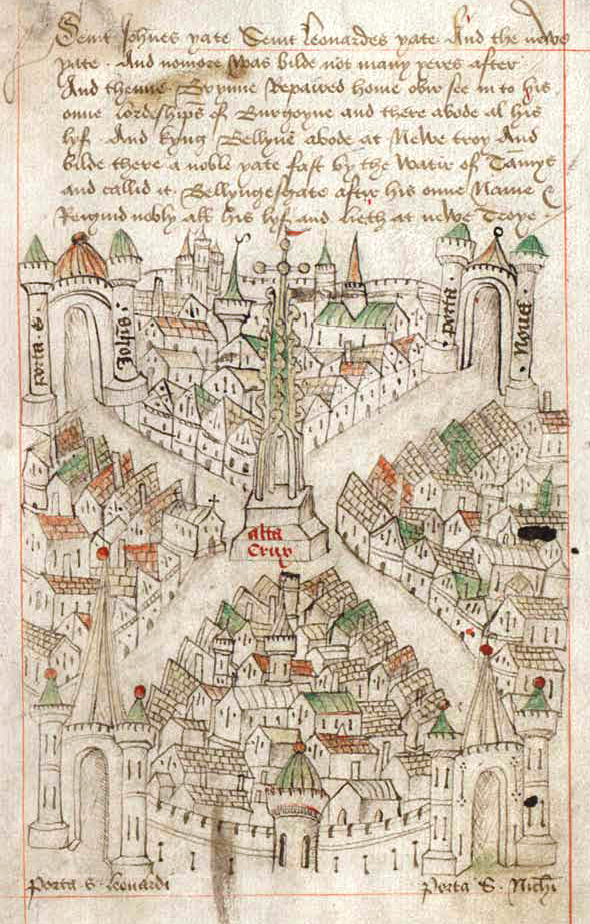 Seint Johnes yate Seint Leonardes yate And the newe
yate. And nomore was bilde not many yeres after
And thenne Brynne Repaired home ovir see in to his
onne lordeships of Burgoyne and there abode al his
lyf. And kyng Bellyne abode at Newe troy And
bilde there a noble yate fast by the watir of Tamys
and callid it. Bellyngesgate aftir his onne Name &
Reigned nobly all his lyf and lieth at newe Troye.
porta S. Johis.
porta Nova
alta
Crux
Porta S. Leonardi
Porta S. Nichi